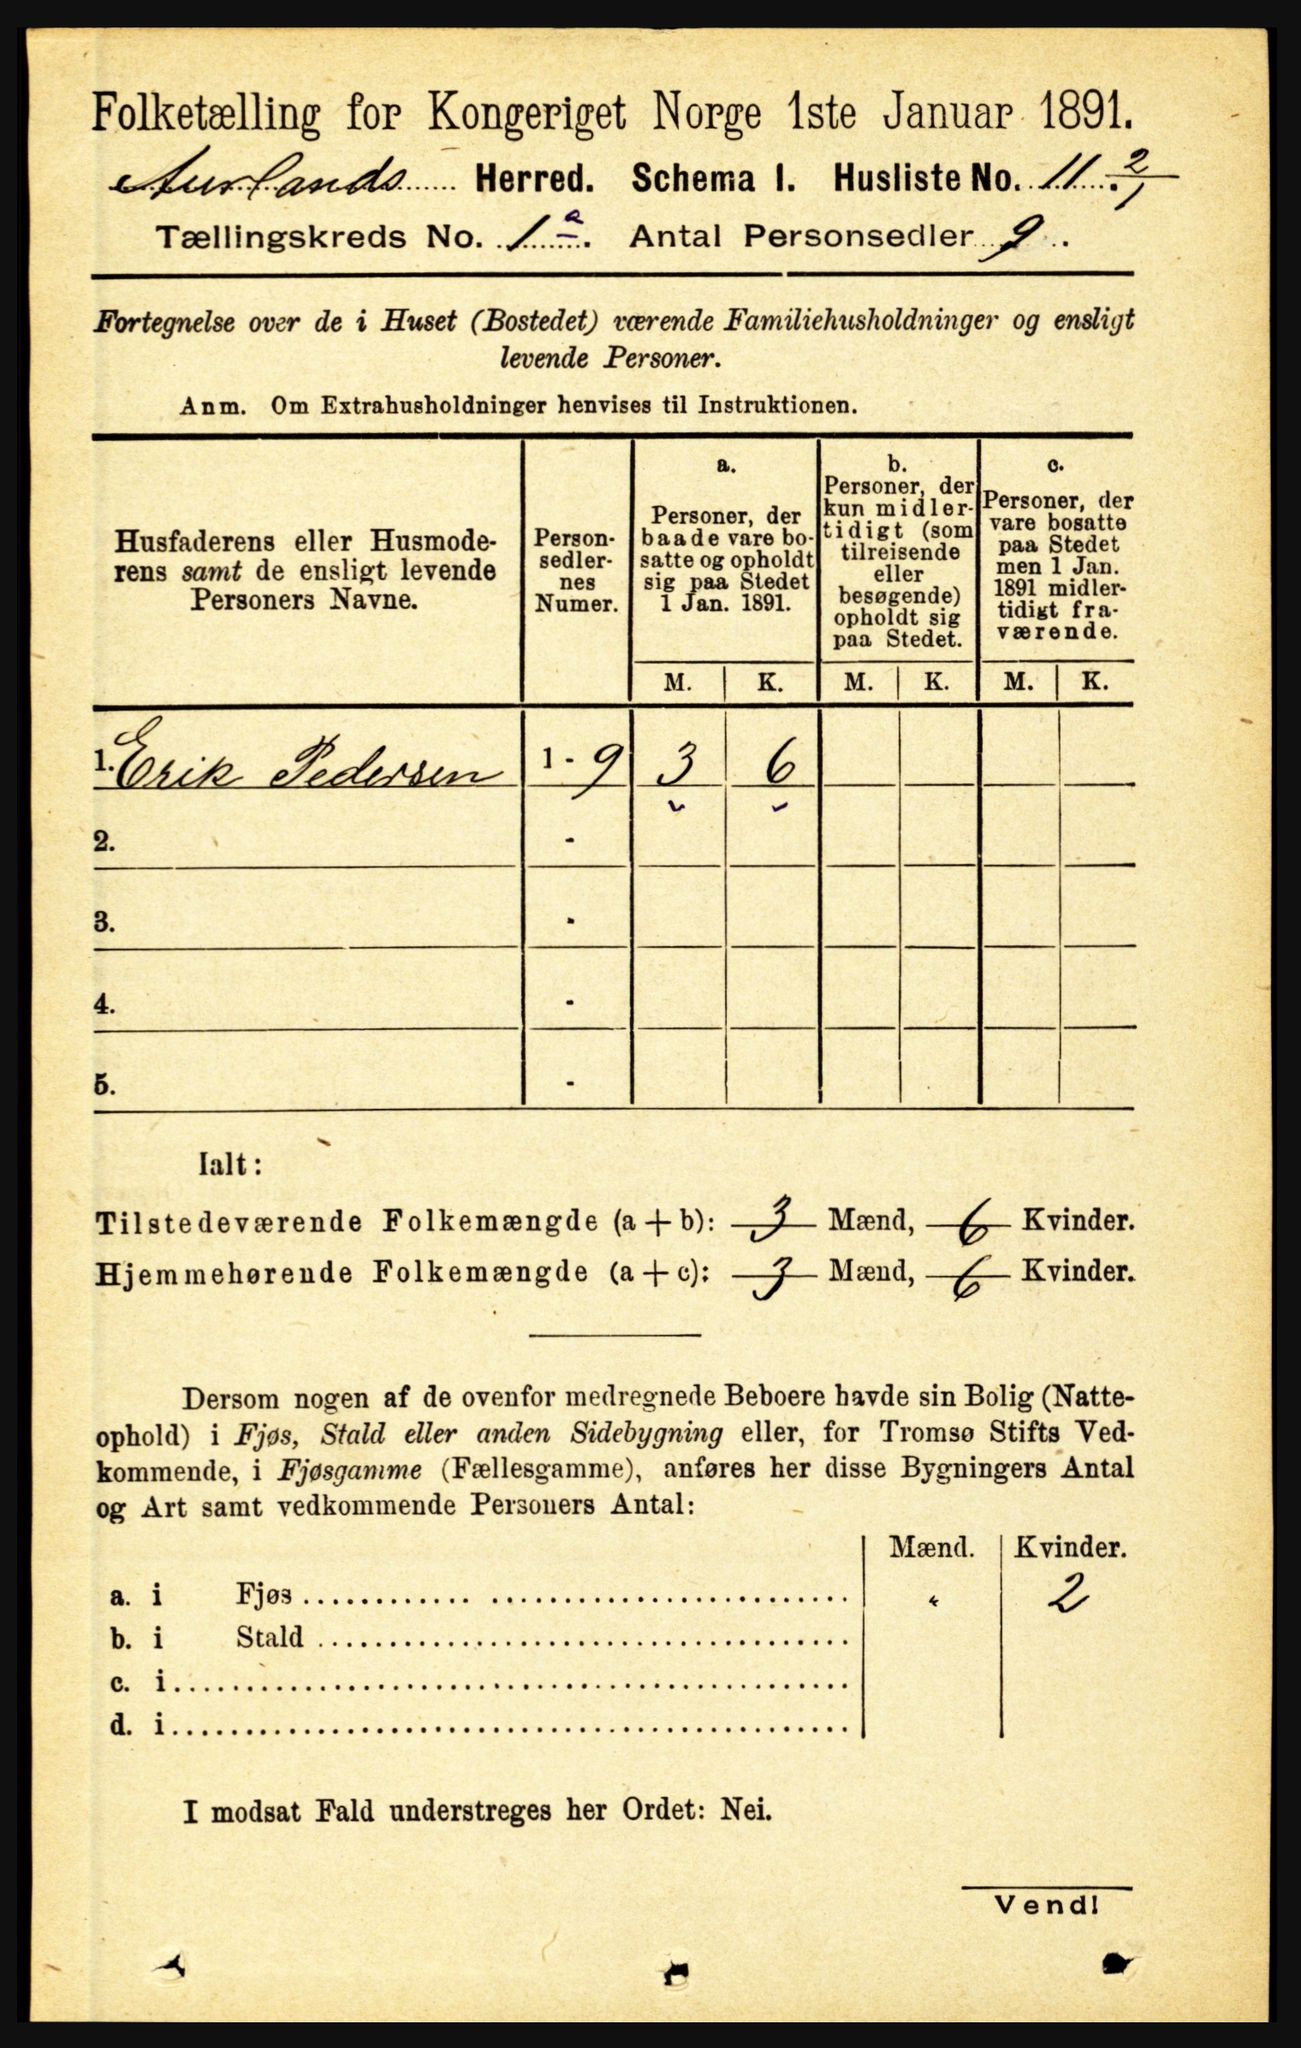 Folketælling for Kongeriget Norge 1ste Januar 1891.
Aurlands Herred. Schema I. Husliste No. 11 2/1
Tællingskreds No. 1 a. Antal Personsedler 9.
Fortegnelse over de i Huset (Bostedet) værende Familiehusholdninger og ensligt
levende Personer.
Anm. Om Extrahusholdninger henvises til Instruktionen.
Husfaderens eller Husmode-
rens samt de ensligt levende
Personers Navne.
Person-
sedler-
nes
Numer.
a.
Personer, der
baade vare bo-
satte og opholdt
sig paa Stedet
1 Jan. 1891.
b.
Personer, der
kun midler-
tidigt (som
tilreisende
eller
besøgende)
opholdt sig
paa Stedet.
c.
Personer, der
vare bosatte
paa Stedet
men 1 Jan.
1891 midler-
tidigt fra-
værende.
M. K. M. K. M. K.
1. Erik Pedersen 1 - 9 3 6
2. -
3. -
4. -
5. -
Ialt:
Tilstedeværende Folkemængde (a + b): 3 Mænd, 6 Kvinder.
Hjemmehørende Folkemængde (a + c): 3 Mænd, 6 Kvinder.
Dersom nogen af de ovenfor medregnede Beboere havde sin Bolig (Natte-
ophold) i Fjøs, Stald eller anden Sidebygning eller, for Tromsø Stifts Ved-
kommende, i Fjøsgamme (Fællesgamme), anføres her disse Bygningers Antal
og Art samt vedkommende Personers Antal:
Mænd. Kvinder.
a. i Fjøs " 2
b. i Stald
c. i
d. i
I modsat Fald understreges her Ordet: Nei.
Vend!